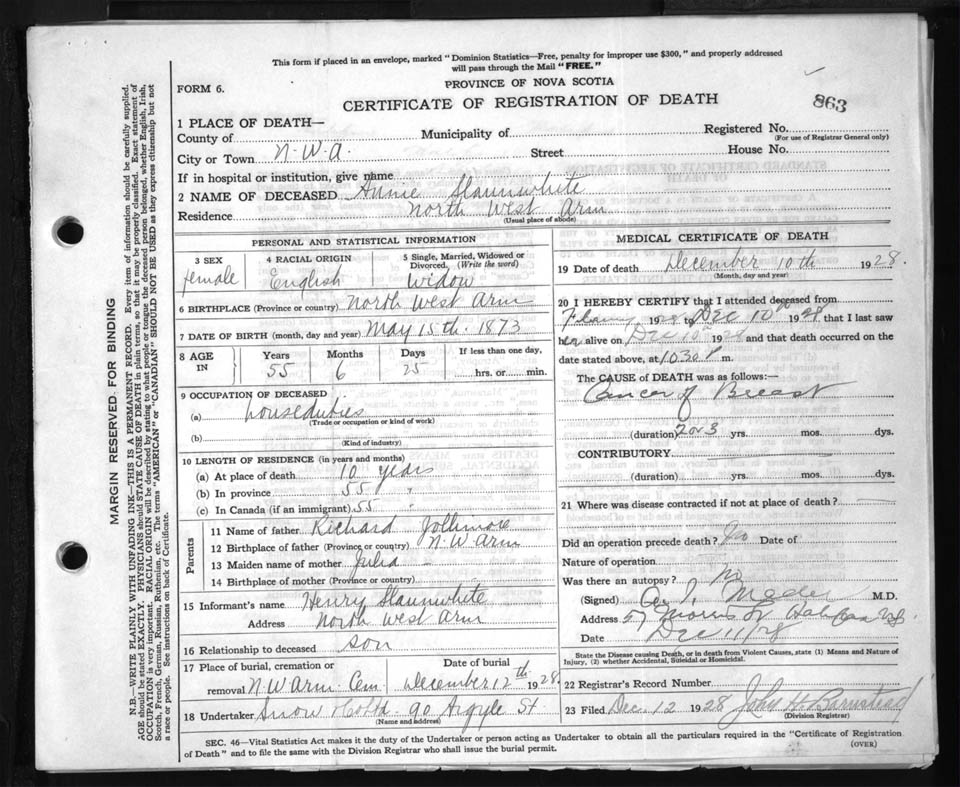 This form if placed in an envelope, marked "Dominion Statistics—Free, penalty for improper use $300," and properly addressed
will pass through the Mail "FREE."
FORM 6.
PROVINCE OF NOVA SCOTIA
CERTIFICATE OF REGISTRATION OF DEATH
863
1 PLACE OF DEATH—
County of Municipality of Registered No.
(For use of Registrar General only)
City or Town N.W.A. Street House No.
If in hospital or institution, give name
2 NAME OF DECEASED Annie Slaunwhite
Residence North West Arm
(Usual place of abode)
PERSONAL AND STATISTICAL INFORMATION
3 SEX female
4 RACIAL ORIGIN English
5 Single, Married, Widowed or Divorced. (Write the word) Widow
6 BIRTHPLACE (Province or country) North West Arm
7 DATE OF BIRTH (month, day and year) May 15th. 1873
8 AGE IN Years 55 Months 6 Days 25 If less than one day, hrs. or min.
9 OCCUPATION OF DECEASED
(a) houseduties
(Trade or occupation or kind of work)
(b)
(Kind of industry)
10 LENGTH OF RESIDENCE (in years and months)
(a) At place of death 10 years
(b) In province 55 "
(c) In Canada (if an immigrant) 55 "
Parents
11 Name of father Richard Jollimore
12 Birthplace of father (Province or country) N.W Arm
13 Maiden name of mother Julia —
14 Birthplace of mother (Province or country)
15 Informant's name Henry Slaunwhite
Address North West Arm
16 Relationship to deceased son
17 Place of burial, cremation or removal N.W Arm. Cem
Date of burial December 12th 1928
18 Undertaker Snow & Co Ltd. 90 Argyle St
(Name and address)
MEDICAL CERTIFICATE OF DEATH
19 Date of death December 10th 1928.
(Month, day and year)
20 I HEREBY CERTIFY that I attended deceased from
1928 to Dec 10th 1928 that I last saw
her alive on Dec 10th 1928 and that death occurred on the
date stated above, at 10.30 P. m.
The CAUSE of DEATH was as follows:—
Cancer of Breast
(duration) 2 or 3 yrs. mos. dys.
CONTRIBUTORY
(duration) yrs. mos. dys.
21 Where was disease contracted if not at place of death?
Did an operation precede death? No Date of
Nature of operation
Was there an autopsy? No
(Signed) Mader M.D.
Address 57 Morris St
Date Dec 11/28
State the Disease causing Death, or in death from Violent Causes, state (1) Means and Nature of
Injury, (2) whether Accidental, Suicidal or Homicidal.
22 Registrar's Record Number
23 Filed Dec. 12 1928 John H. Barnstead
(Division Registrar)
SEC. 46—Vital Statistics Act makes it the duty of the Undertaker or person acting as Undertaker to obtain all the particulars required in the "Certificate of Registration
of Death" and to file the same with the Division Registrar who shall issue the burial permit.
(OVER)
MARGIN RESERVED FOR BINDING
N.B.—WRITE PLAINLY WITH UNFADING INK—THIS IS A PERMANENT RECORD. Every item of information should be carefully supplied.
AGE should be stated EXACTLY. PHYSICIANS should STATE CAUSE OF DEATH in plain terms, so that it may be properly classified. Exact statement of
OCCUPATION is very important. RACIAL ORIGIN will be described by stating to what people or tongue the deceased person belonged, whether English, Irish,
Scotch, French, German, Russian, Ruthenian, etc. The terms "AMERICAN" or "CANADIAN" SHOULD NOT BE USED as they express citizenship but not
a race or people. See instructions on back of Certificate.